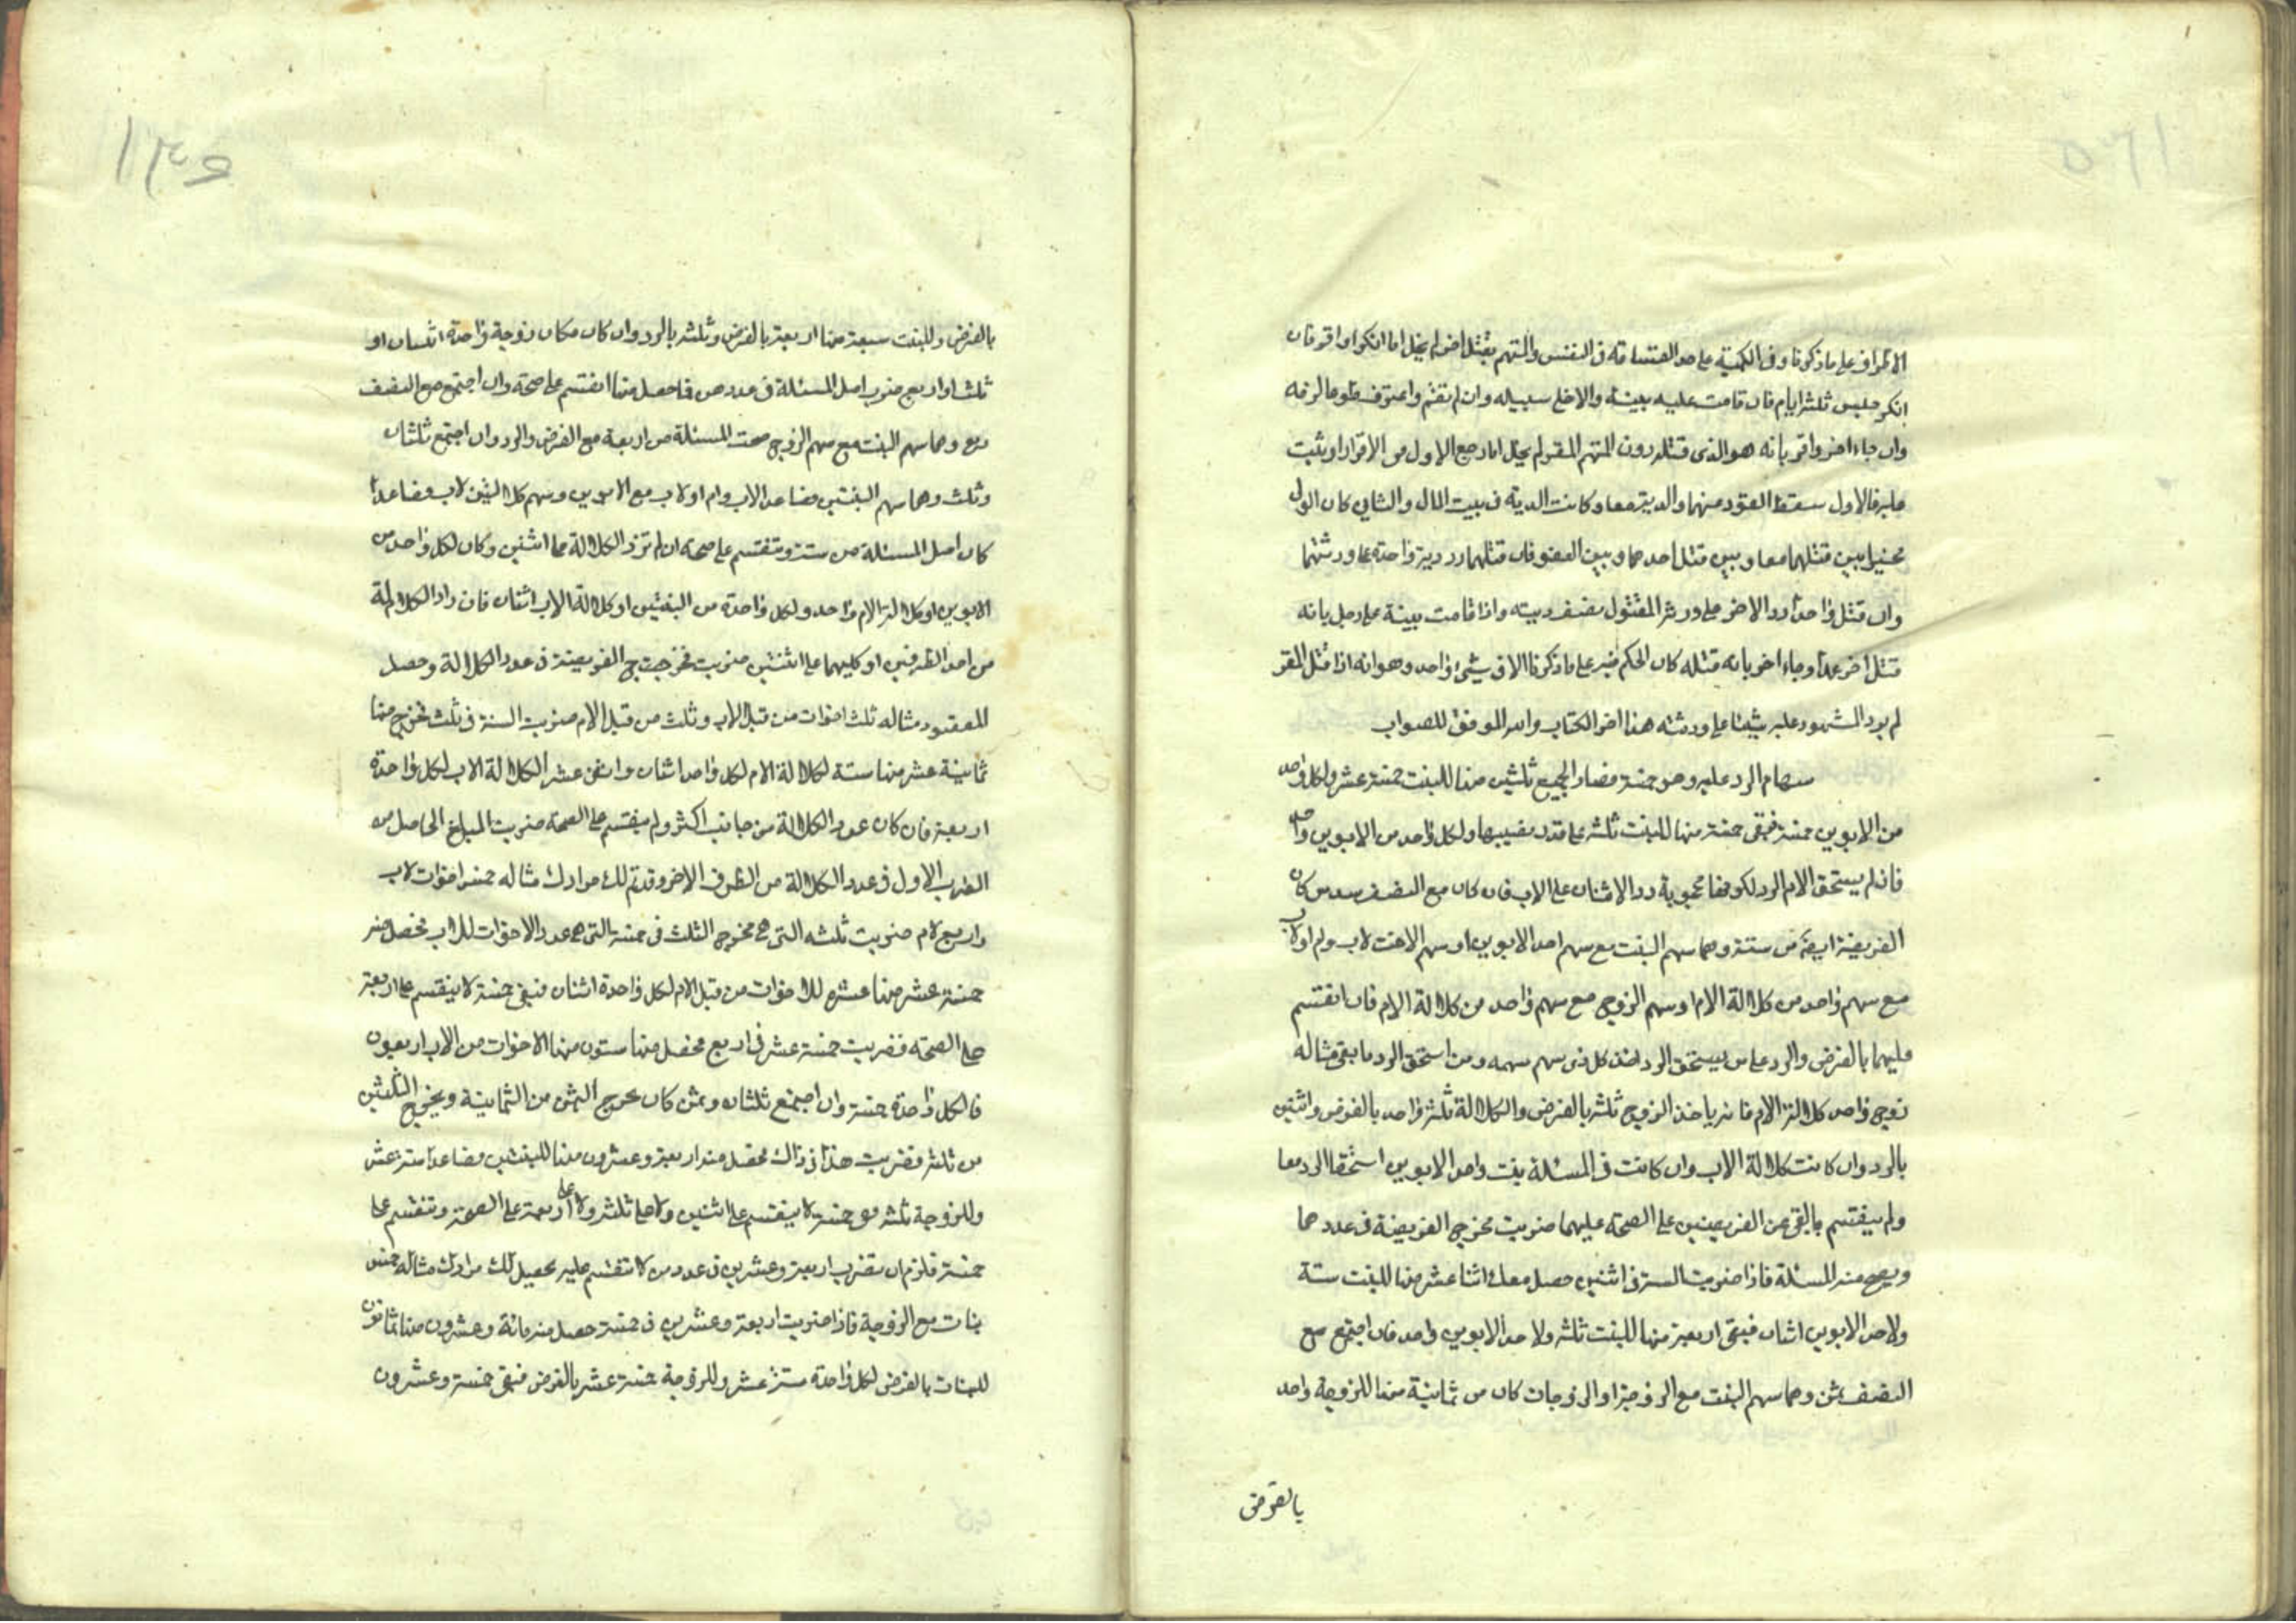 الاطراف على ما ذكرنا وفي الكمية على حد القسامة في النفس والمتهم بقتل اخر لم يخل اما انكر او اقر فان
انكر حبس ثلثة ايام فان قامت عليه بينة والا خلى سبيله وان لم تقم واعترف
وان جاء اخر واقر بانه هو الذي قتله دون المتهم المقر لم يخل اما رجع الاول من الاقرار او يثبت
عليه فالاول سقط القود عنهما والدية معا وكانت الدية في بيت المال والثاني كان الولى
مخيرا بين قتلهما معا وبين قتل احدهما وبين العفو فان قتلهما رد دية واحدة على ورثتهما
وان قتل واحدا رد الاخر على ورثة المقتول نصف ديته واذا قامت بينة على رجل بانه
قتل اخر عمدا وجاء اخر بانه قتله كان الحكم فيه على ما ذكرنا الا في شيئ واحد وهو انه اذا قتل المقر
لم يرد المشهود عليه شيئا على ورثته هذا اخر الكتاب والله الموفق للصواب
سهام الرد عليه وهو خمسة فصار الجميع ثلثين منها للبنت خمسة عشر ولكل واحد
من الابوين خمسة فبقى خمسة منها للبنت ثلثة على قدر نصيبها ولكل واحد من الابوين واحد
فان لم يستحق الام الرد لكونها محجوبة رد الاثنان على الاب فان كان مع النصف سدس كان
الفريضة ايضا من ستة وهما سهم البنت مع سهم احد الابوين او سهم الاخت لاب وام او لاب
مع سهم واحد من كلالة الام او سهم الزوج مع سهم واحد من كلالة الام فان انقسم
عليهما بالفرض والرد على من يستحق الرد اخذ كل ذى سهم سهمه ومن استحق الرد ما بقى مثاله
زوج واحد كلالة الام فانه ياخذ الزوج ثلثة بالفرض والكلالة ثلثة واحد بالفرض واثنين
بالرد وان كانت كلالة الاب وان كانت في المسئلة بنت واحد الابوين استحقا الرد معا
ولم ينقسم ما بقى عن الفريضتين على الصحة عليهما ضربت مخرج الفريضة في عددهما
ويصح منه المسئلة فاذا ضربت الستة في اثنين حصل معك اثنا عشر منها للبنت ستة
ولاحد الابوين اثنان فبقى اربعة منها للبنت ثلثة ولاحد الابوين واحد فان اجتمع مع
النصف ثمن وهما سهم البنت مع الزوجة او الزوجات كان من ثمانية منها للزوجة واحد
بالفرض
۱۳۶
بالفرض وللبنت سبعة منها اربعة بالفرض وثلثة بالرد وان كان مكان زوجة واحدة اثنتان او
ثلث او اربع ضرب اصل المسئلة في عددهن فما حصل منها انقسم على صحة وان اجتمع مع النصف
ربع وهما سهم البنت مع سهم الزوج صحت المسئلة من اربعة مع الفرض والرد وان اجتمع ثلثان
وثلث وهما سهم البنتين فصاعدا لاب وام او لاب مع الابوين وسهم كلالتين لاب فصاعدا
كان اصل المسئلة من ستة وتنقسم على صحة ان لم تزد الكلالة مما اثنين وكان لكل واحد من
الابوين او كلالة الام واحد ولكل واحدة من البنتين او كلالة الاب اثنان فان زاد الكلالة
من احد الطرفين او كليهما على اثنتين ضربت مخرج الفريضة في عدد الكلالة وحصل
المقصود مثاله ثلث اخوات من قبل الاب وثلث من قبل الام ضربت الستة في ثلث مخرج منها
ثمانية عشر منها ستة لكلالة الام لكل واحد اثنان واثنى عشر لكلالة الاب لكل واحدة
اربعة فان كان عدد الكلالة من جانب اكثر ولم ينقسم على الصحة ضربت المبلغ الحاصل من
الضرب الاول في عدد الكلالة من الطرف الاخر وقد تم لك مرادك مثاله خمس اخوات لاب
واربع لام ضربت ثلثة التي هي مخرج الثلث في خمسة التي هي عدد الاخوات للاب فحصل منه
خمسة عشر منها عشرة للاخوات من قبل الام لكل واحدة اثنان فبقى خمسة لا ينقسم على اربعة
على الصحة فضربت خمسة عشر في اربع فحصل منها ستون منها الاخوات من الاب اربعون
فالكل واحدة خمسة وان اجتمع ثلثان وثمن كان مخرج الثمن من الثمانية ويخرج الثلثين
من ثلثة فضربت هذا في ذاك فحصل منه اربعة وعشرون منها للبنتين فصاعدا ستة عشر
وللزوجة ثلثة بقى خمسة لا ينقسم على اثنين ولا على ثلثة ولا على اربعة على الصحة وتنقسم على
خمسة فلزم ان تضرب اربعة وعشرين في عدد من لا تنقسم عليه يحصل لك مرادك مثاله خمس
بنات مع الزوجة فاذا ضربت اربعة وعشرين في خمسة حصل منه مائة وعشرون منها ثمانون
للبنات بالفرض لكل واحدة ستة عشر وللزوجة خمسة عشر بالفرض فبقى خمسة وعشرون